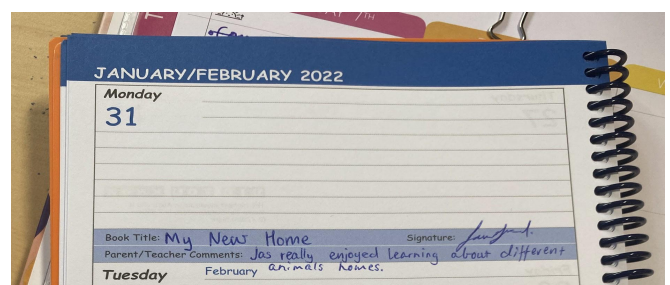 JANUARY/FEBRUARY 2022
Monday
31
Book Title: My New Home Signature:
Parent/Teacher Comments: Jas really enjoyed learning about different
Tuesday February animals homes.